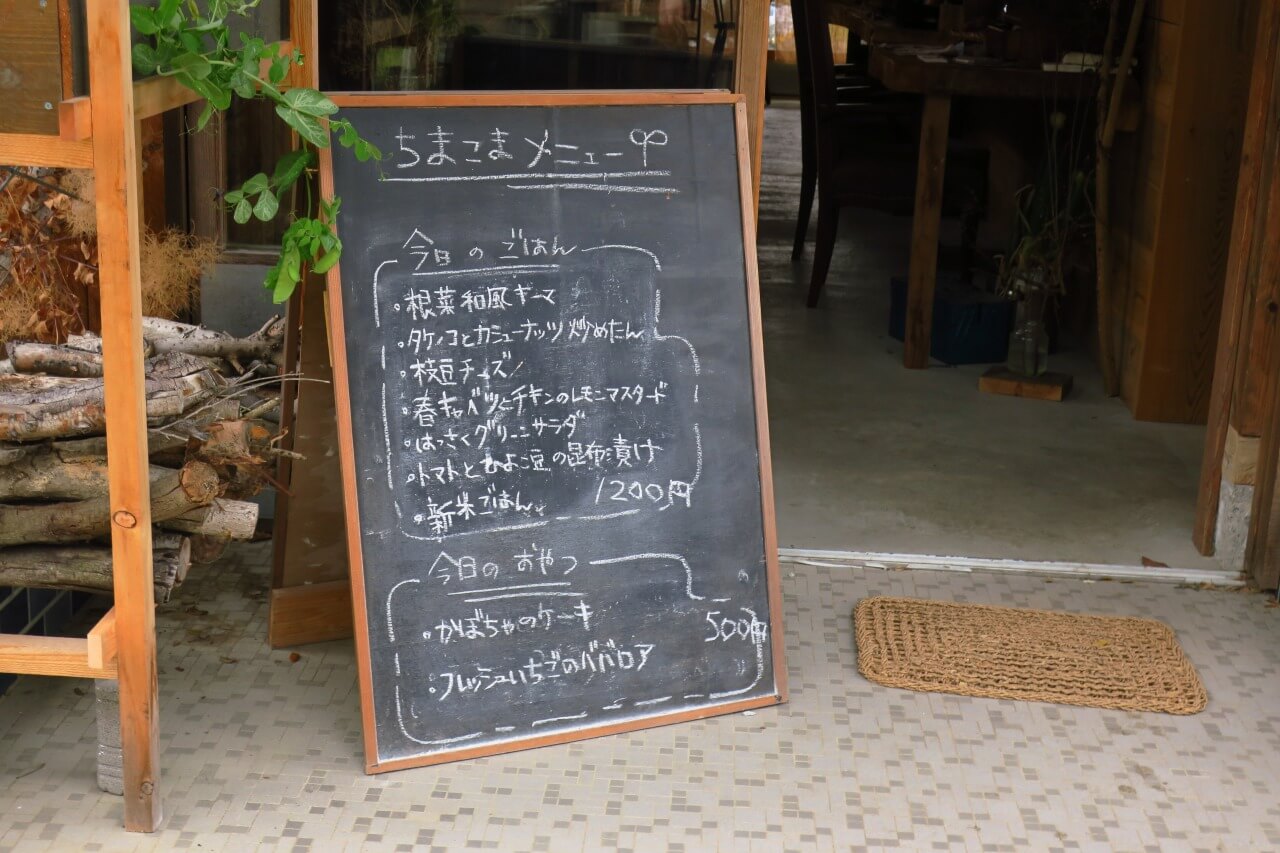 ちまこまメニュー
今日のごはん
・根菜和風キーマ
・タケノコとカシューナッツ炒めたん
・枝豆チーズ
・春キャベツとチキンのレモンマスタード
・はっさくグリーンサラダ
・トマトとひよこ豆の昆布漬け
・新米ごはん 1200円
今日のおやつ
・かぼちゃのケーキ 500円
・フレッシュいちごのババロア